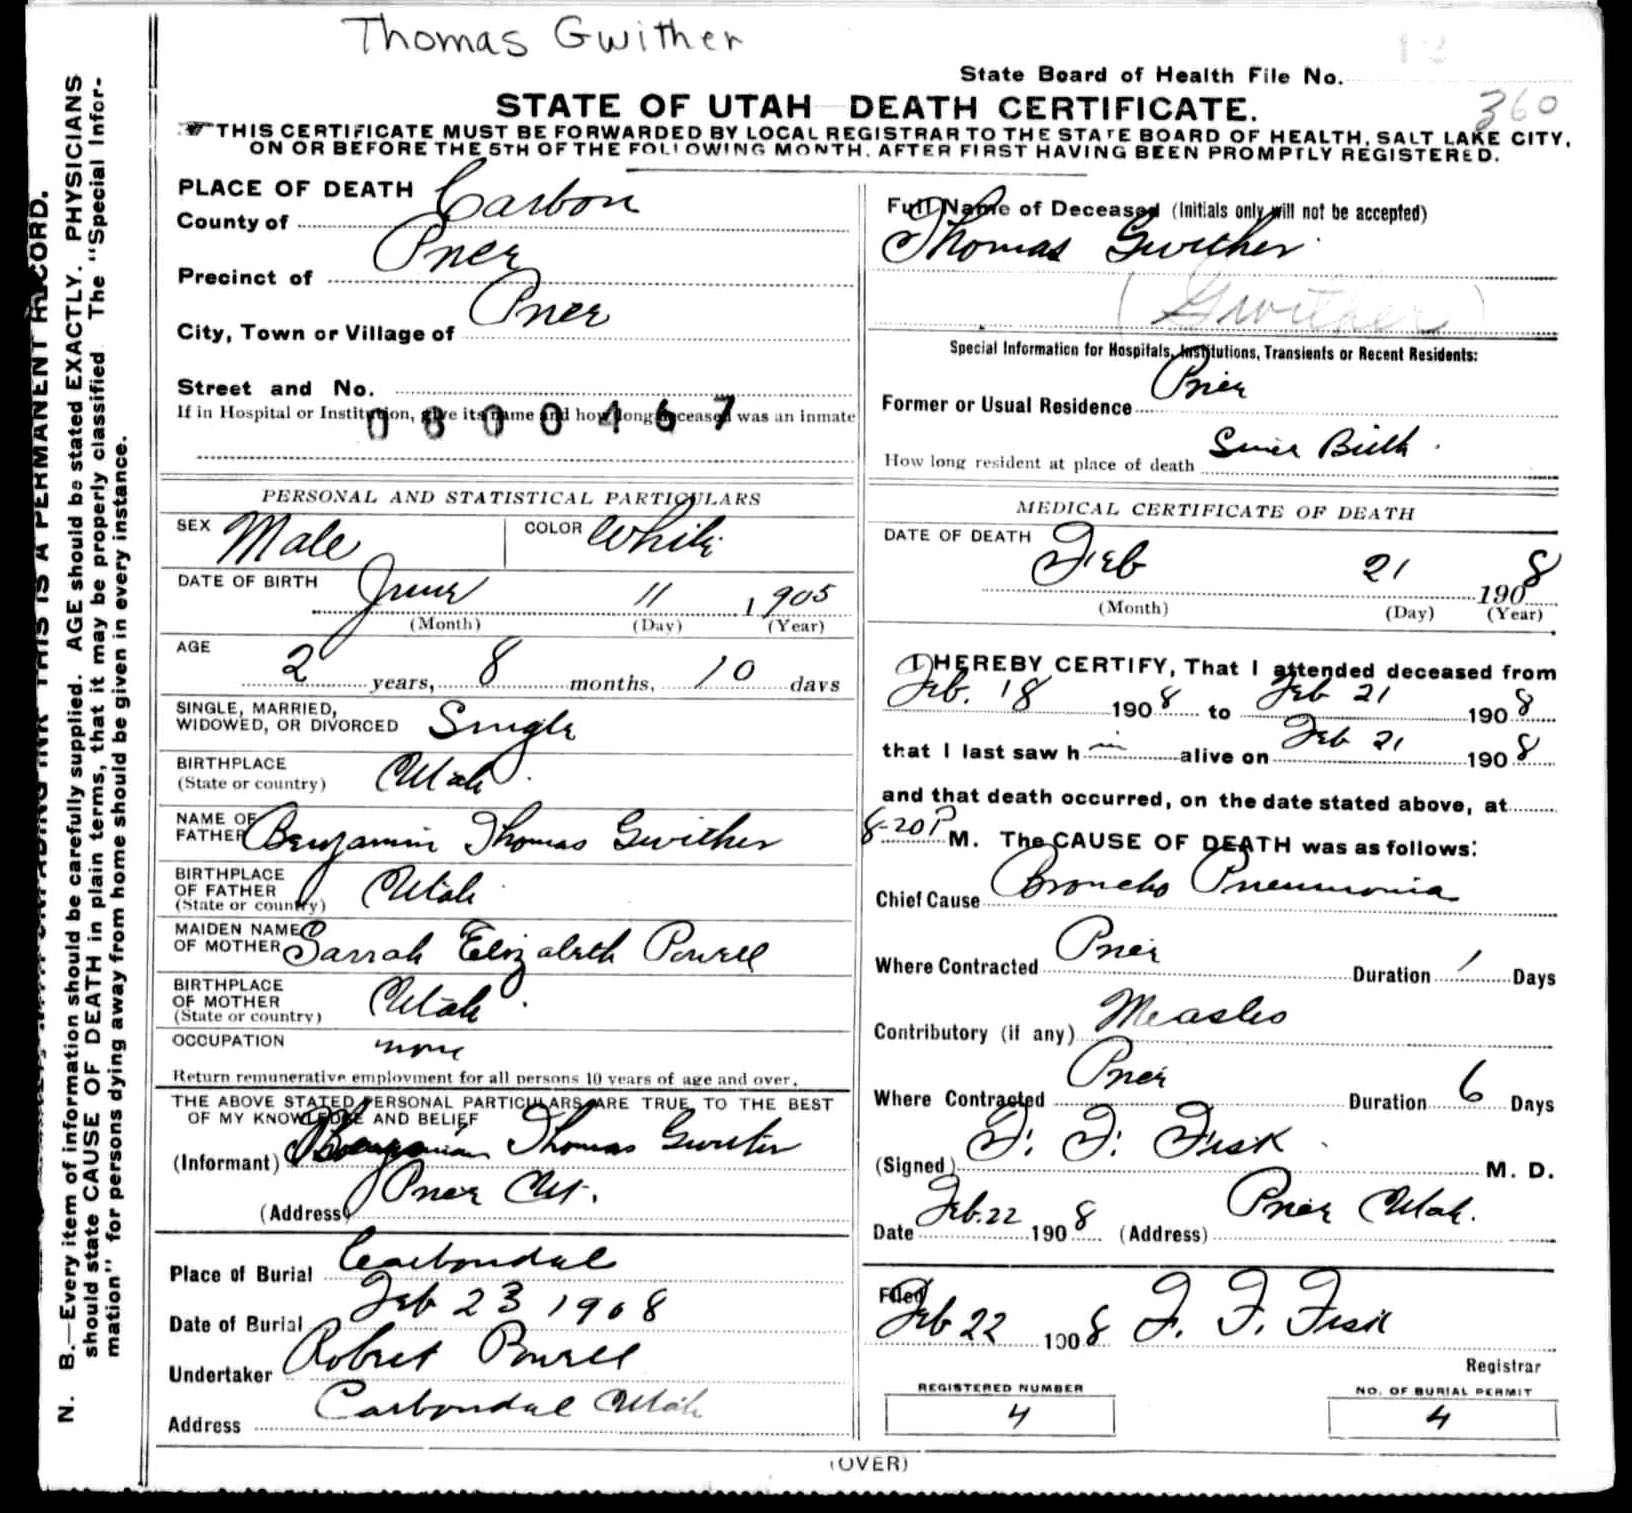 Thomas Gwither
State Board of Health File No.
360
STATE OF UTAH DEATH CERTIFICATE.
THIS CERTIFICATE MUST BE FORWARDED BY LOCAL REGISTRAR TO THE STATE BOARD OF HEALTH, SALT LAKE CITY,
ON OR BEFORE THE 5TH OF THE FOLLOWING MONTH, AFTER FIRST HAVING BEEN PROMPTLY REGISTERED.
N. B.—Every item of information should be carefully supplied. AGE should be stated EXACTLY. PHYSICIANS
should state CAUSE OF DEATH in plain terms, that it may be properly classified. The "Special Infor-
mation" for persons dying away from home should be given in every instance.
THIS IS A PERMANENT RECORD.
PLACE OF DEATH
County of Carbon
Precinct of Price
City, Town or Village of Price
Street and No.
If in Hospital or Institution, give its name and how long deceased was an inmate
0800467
PERSONAL AND STATISTICAL PARTICULARS
SEX Male COLOR White
DATE OF BIRTH June 11 1905
(Month) (Day) (Year)
AGE
2 years, 8 months, 10 days
SINGLE, MARRIED,
WIDOWED, OR DIVORCED Single
BIRTHPLACE
(State or country) Utah
NAME OF
FATHER Benjamin Thomas Gwither
BIRTHPLACE
OF FATHER Utah
(State or country)
MAIDEN NAME
OF MOTHER Sarrah Elizabeth Powell
BIRTHPLACE
OF MOTHER Utah
(State or country)
OCCUPATION none
Return remunerative employment for all persons 10 years of age and over.
THE ABOVE STATED PERSONAL PARTICULARS ARE TRUE TO THE BEST
OF MY KNOWLEDGE AND BELIEF
(Informant) Benjamin Thomas Gwither
(Address) Price Ut.
Place of Burial Carbondale
Date of Burial Feb 23 1908
Undertaker Robert Powell
Address Carbondale Utah
Full Name of Deceased (Initials only will not be accepted)
Thomas Gwither
(Gwither)
Special Information for Hospitals, Institutions, Transients or Recent Residents:
Former or Usual Residence Price
How long resident at place of death Since Birth
MEDICAL CERTIFICATE OF DEATH
DATE OF DEATH
Feb 21 1908
(Month) (Day) (Year)
I HEREBY CERTIFY, That I attended deceased from
Feb. 18 1908 to Feb 21 1908
that I last saw him alive on Feb 21 1908
and that death occurred, on the date stated above, at
8-20 P M. The CAUSE OF DEATH was as follows:
Chief Cause Broncho Pneumonia
Where Contracted Price Duration 1 Days
Contributory (if any) Measles
Where Contracted Price Duration 6 Days
(Signed) F. F. Fisk M. D.
Date Feb. 22 1908 (Address) Price Utah.
Filed
Feb 22 1908 F. F. Fisk
Registrar
REGISTERED NUMBER
4
NO. OF BURIAL PERMIT
4
(OVER)